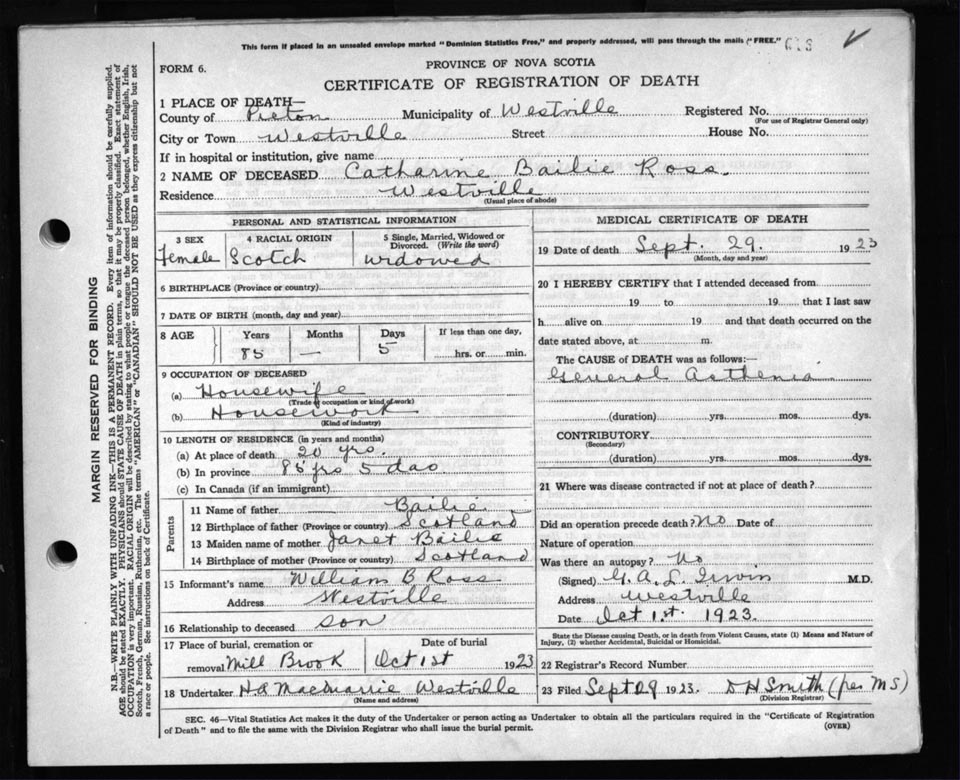 This form if placed in an unsealed envelope marked "Dominion Statistics Free," and properly addressed, will pass through the mails "FREE." 618
FORM 6.
PROVINCE OF NOVA SCOTIA
CERTIFICATE OF REGISTRATION OF DEATH
1 PLACE OF DEATH—
County of Pictou Municipality of Westville Registered No.
(For use of Registrar General only)
City or Town Westville Street House No.
If in hospital or institution, give name
2 NAME OF DECEASED Catharine Bailie Ross.
Residence Westville
(Usual place of abode)
PERSONAL AND STATISTICAL INFORMATION
3 SEX 4 RACIAL ORIGIN 5 Single, Married, Widowed or Divorced. (Write the word)
Female Scotch widowed
6 BIRTHPLACE (Province or country)
7 DATE OF BIRTH (month, day and year)
8 AGE Years Months Days If less than one day,
85 — 5 hrs. or min.
9 OCCUPATION OF DECEASED
(a) Housewife
(Trade, occupation or kind of work)
(b) Housework
(Kind of industry)
10 LENGTH OF RESIDENCE (in years and months)
(a) At place of death 20 yrs.
(b) In province 85 yrs 5 das
(c) In Canada (if an immigrant)
Parents
11 Name of father — Bailie
12 Birthplace of father (Province or country) Scotland
13 Maiden name of mother Janet Bailie
14 Birthplace of mother (Province or country) Scotland
15 Informant's name William B Ross
Address Westville
16 Relationship to deceased son
17 Place of burial, cremation or removal Mill Brook Date of burial Oct 1st 1923
18 Undertaker Westville
(Name and address)
MEDICAL CERTIFICATE OF DEATH
19 Date of death Sept. 29. 1923
(Month, day and year)
20 I HEREBY CERTIFY that I attended deceased from
19 to 19 that I last saw
h alive on 19 and that death occurred on the
date stated above, at m.
The CAUSE of DEATH was as follows:—
General Asthenia
(duration) yrs. mos. dys.
CONTRIBUTORY
(Secondary)
(duration) yrs. mos. dys.
21 Where was disease contracted if not at place of death?
Did an operation precede death? No Date of
Nature of operation
Was there an autopsy? No
(Signed) G. A. L. Irwin M.D.
Address Westville
Date Oct 1st. 1923.
State the Disease causing Death, or in death from Violent Causes, state (1) Means and Nature of
Injury, (2) whether Accidental, Suicidal or Homicidal.
22 Registrar's Record Number
23 Filed Sept 29 1923. D H Smith (per M S)
(Division Registrar)
SEC. 46—Vital Statistics Act makes it the duty of the Undertaker or person acting as Undertaker to obtain all the particulars required in the "Certificate of Registration
of Death" and to file the same with the Division Registrar who shall issue the burial permit. (OVER)
MARGIN RESERVED FOR BINDING
N.B.—WRITE PLAINLY WITH UNFADING INK—THIS IS A PERMANENT RECORD. Every item of information should be carefully supplied.
AGE should be stated EXACTLY. PHYSICIANS should STATE CAUSE OF DEATH in plain terms, so that it may be properly classified. Exact statement of
OCCUPATION is very important. RACIAL ORIGIN will be described by stating to what people or tongue the deceased person belonged, whether English, Irish,
Scotch, French, German, Russian, Ruthenian, etc. The terms "AMERICAN" or "CANADIAN" SHOULD NOT BE USED as they express citizenship but not
a race or people. See instructions on back of Certificate.